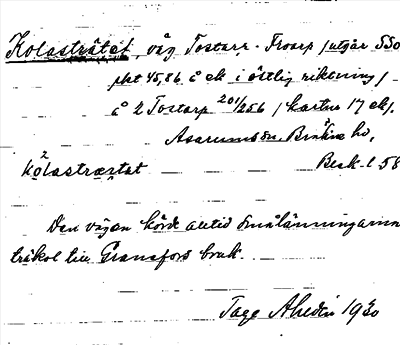 Kolasträtet, väg Tostarp - Froarp /utgår SSO
pkt 45,86 å ek i östlig riktning/
å 2 Tostarp 201/256 /kartan 17 ek/.
Asarums sn. Bräkne hd,
kolastrætet Blek. l. 58
Den vägen körde alltid smålänningarna
träkol till Granefors bruk.
Tage Ahldén 1930